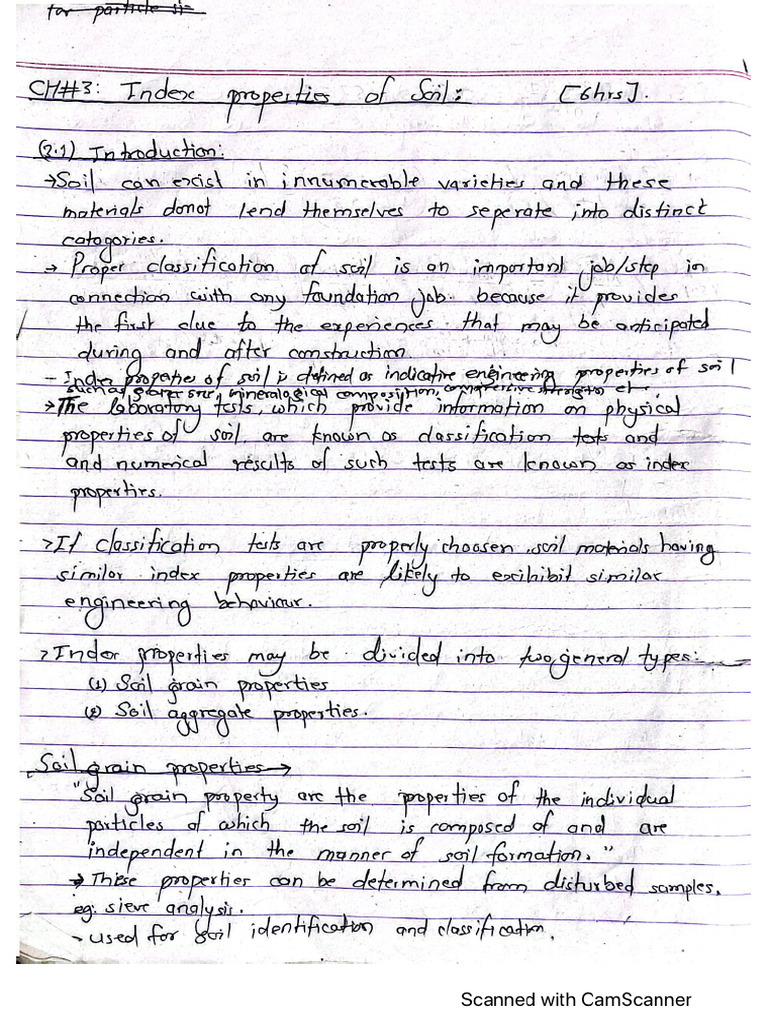 for particle si
1
CH#3: Index properties of Soil: [6hrs].
(3.1) Introduction:
→Soil can exist in innumerable varieties and these
materials donot lend themselves to seperate into distinct
catagories.
→ Proper classification of soil is an important job/step in
connection with any foundation job. because it provides
the first clue to the experiences that may be anticipated
during and after construction.
- Index properties of soil is defined as indicative engineering properties of soil
such as grain size, mineralogical composition, compressive strength etc
→The laboratory tests, which provide information on physical
properties of soil, are known as classification tests and
and numerical results of such tests are known as index
properties.
→If classification tests are properly choosen, soil materials having
similar index properties are likely to exihibit similar
engineering behaviour.
→Index properties may be divided into two general types:
(1) Soil grain properties
(2) Soil aggregate properties.
Soil grain properties →
"Soil grain property are the properties of the individual
particles of which the soil is composed of and are
independent in the manner of soil formation."
→ These properties can be determined from disturbed samples.
eg: sieve analysis.
- used for soil identification and classification.
Scanned with CamScanner